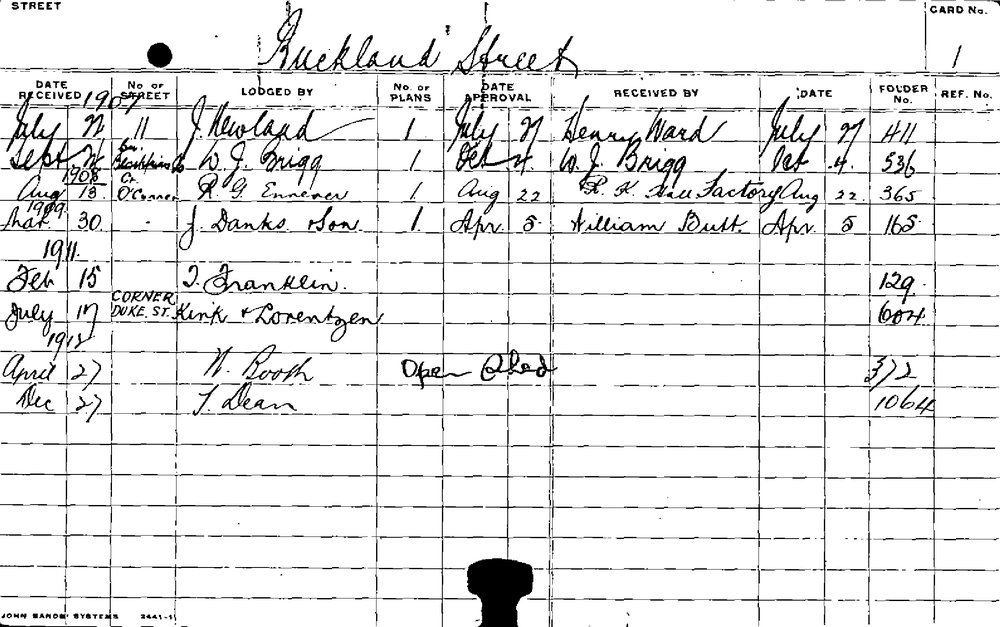 STREET
CARD No.
Buckland Street
1
DATE RECEIVED No. OF STREET LODGED BY No. OF PLANS DATE APPROVAL RECEIVED BY DATE FOLDER No. REF. No.
1907
July 11 J. Newland 1 July Henry Ward July 411
Sept W. J. Brigg 1 Oct 4. W. J. Brigg Oct 4. 536
1908
Aug 13. Cr. O'Conner R. G. Ennever 1. Aug 22 R. K. Hall Factory Aug 22. 365
1909
Mar. 30. - J. Danks & Son 1. Apr. 5 William Butt Apr. 5 165
1911.
Feb 15 T. Franklin. 129.
July 17 CORNER DUKE. ST. Kirk & Lorentzen 604.
1912
April 27 W. Booth Open Shed 372
Dec 27 T. Dean 1064
JOHN SANDS' SYSTEMS 2441-1